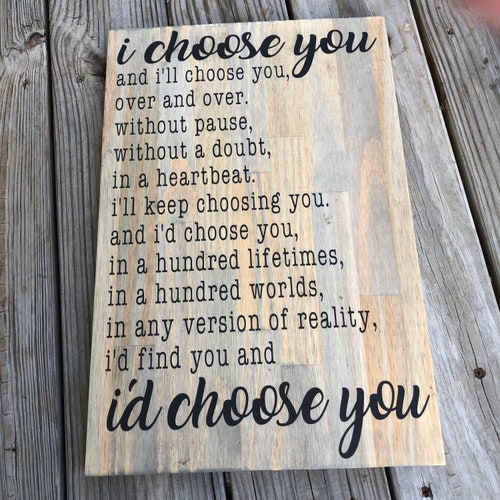 i choose you
and i'll choose you,
over and over.
without pause,
without a doubt,
in a heartbeat.
i'll keep choosing you.
and i'd choose you,
in a hundred lifetimes,
in a hundred worlds,
in any version of reality,
i'd find you and
i'd choose you